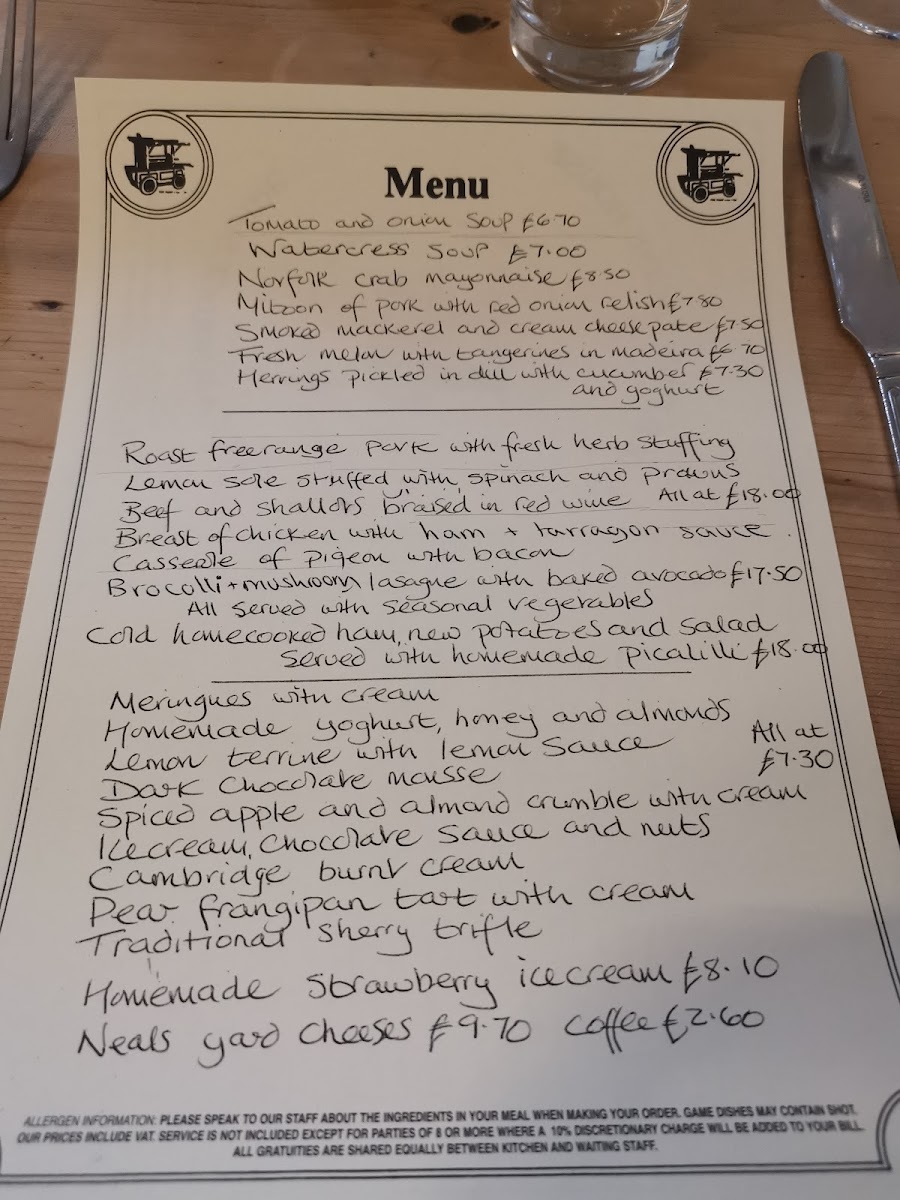 Menu
Tomato and onion soup £6.70
Watercress soup £7.00
Norfolk crab mayonnaise £8.50
Mitoon of pork with red onion relish £7.80
Smoked mackerel and cream cheese pate £7.50
Fresh melon with tangerines in madeira £6.70
Herrings pickled in dill with cucumber £7.30
and yoghurt
Roast freerange pork with fresh herb stuffing
Lemon sole stuffed with spinach and prawns
Beef and shallots braised in red wine All at £18.00
Breast of chicken with ham + tarragon sauce.
Casserole of pigeon with bacon
Brocolli + mushroom lasagne with baked avocado £17.50
All served with seasonal vegetables
Cold homecooked ham, new potatoes and salad
served with homemade picalilli £18.00
Meringues with cream
Homemade yoghurt, honey and almonds
Lemon terrine with lemon sauce All at
Dark chocolate mousse £7.30
Spiced apple and almond crumble with cream
Icecream, chocolate sauce and nuts
Cambridge burnt cream
Pear frangipan tart with cream
Traditional sherry trifle
Homemade strawberry icecream £8.10
Neals yard cheeses £9.70 coffee £2.60
ALLERGEN INFORMATION: PLEASE SPEAK TO OUR STAFF ABOUT THE INGREDIENTS IN YOUR MEAL WHEN MAKING YOUR ORDER. GAME DISHES MAY CONTAIN SHOT.
OUR PRICES INCLUDE VAT. SERVICE IS NOT INCLUDED EXCEPT FOR PARTIES OF 8 OR MORE WHERE A 10% DISCRETIONARY CHARGE WILL BE ADDED TO YOUR BILL.
ALL GRATUITIES ARE SHARED EQUALLY BETWEEN KITCHEN AND WAITING STAFF.